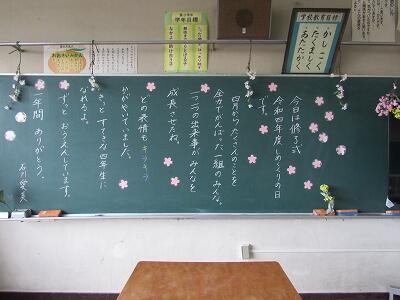 学校教育目標
かしこく
たくましく
あたたかく
学年目標
今日は修了式
令和四年度しめくくりの日
です。
四月から、たくさんのことを
全力でがんばった一組のみんな。
一つ一つの出来事がみんなを
成長させたね。
どの表情もキラキラ
かがやいていました。
もっとすてきな四年生に
なれるよ。
ずっとおうえんしています。
一年間ありがとう。
石川愛美